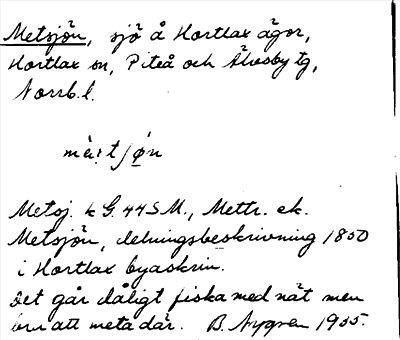 Metsjön, sjö å Hortlax ägor,
Hortlax sn, Piteå och Älvsby tg,
Norrb.l.
Metsj. k G. 44SM., Mettr. ek.
Metsjön, delningsbeskrivning 1850
i Hortlax byaskrin.
Det går dåligt fiska med nät men
bra att meta där. B. Nygren 1955.